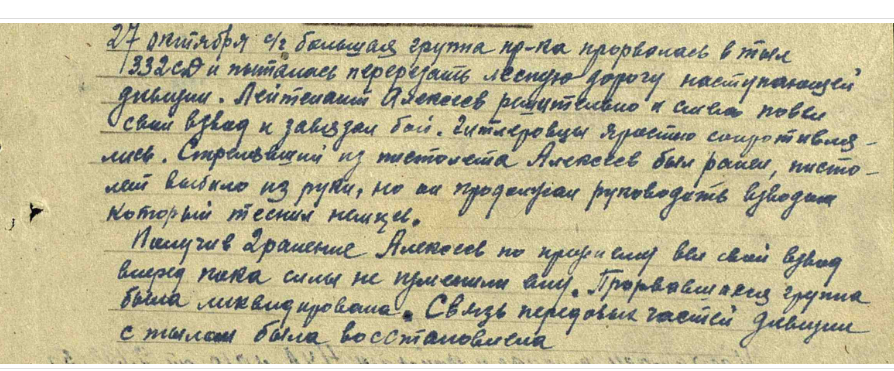 27 октября с/г большая группа пр-ка прорвалась в тыл
332СД и пыталась перерезать лесную дорогу наступающей
дивизии. Лейтенант Алексеев решительно и смело повел
свой взвод и завязал бой. Гитлеровцы яростно сопротивля-
лись. Стрелявший из пистолета Алексеев был ранен, писто-
лет выбило из руки, но он продолжал руководить взводом
который теснил немцев.
Получив 2 ранение Алексеев по прежнему вел свой взвод
вперед пока силы не изменили ему. Прорвавшаяся группа
была ликвидирована. Связь передовых частей дивизии
с тылом была восстановлена